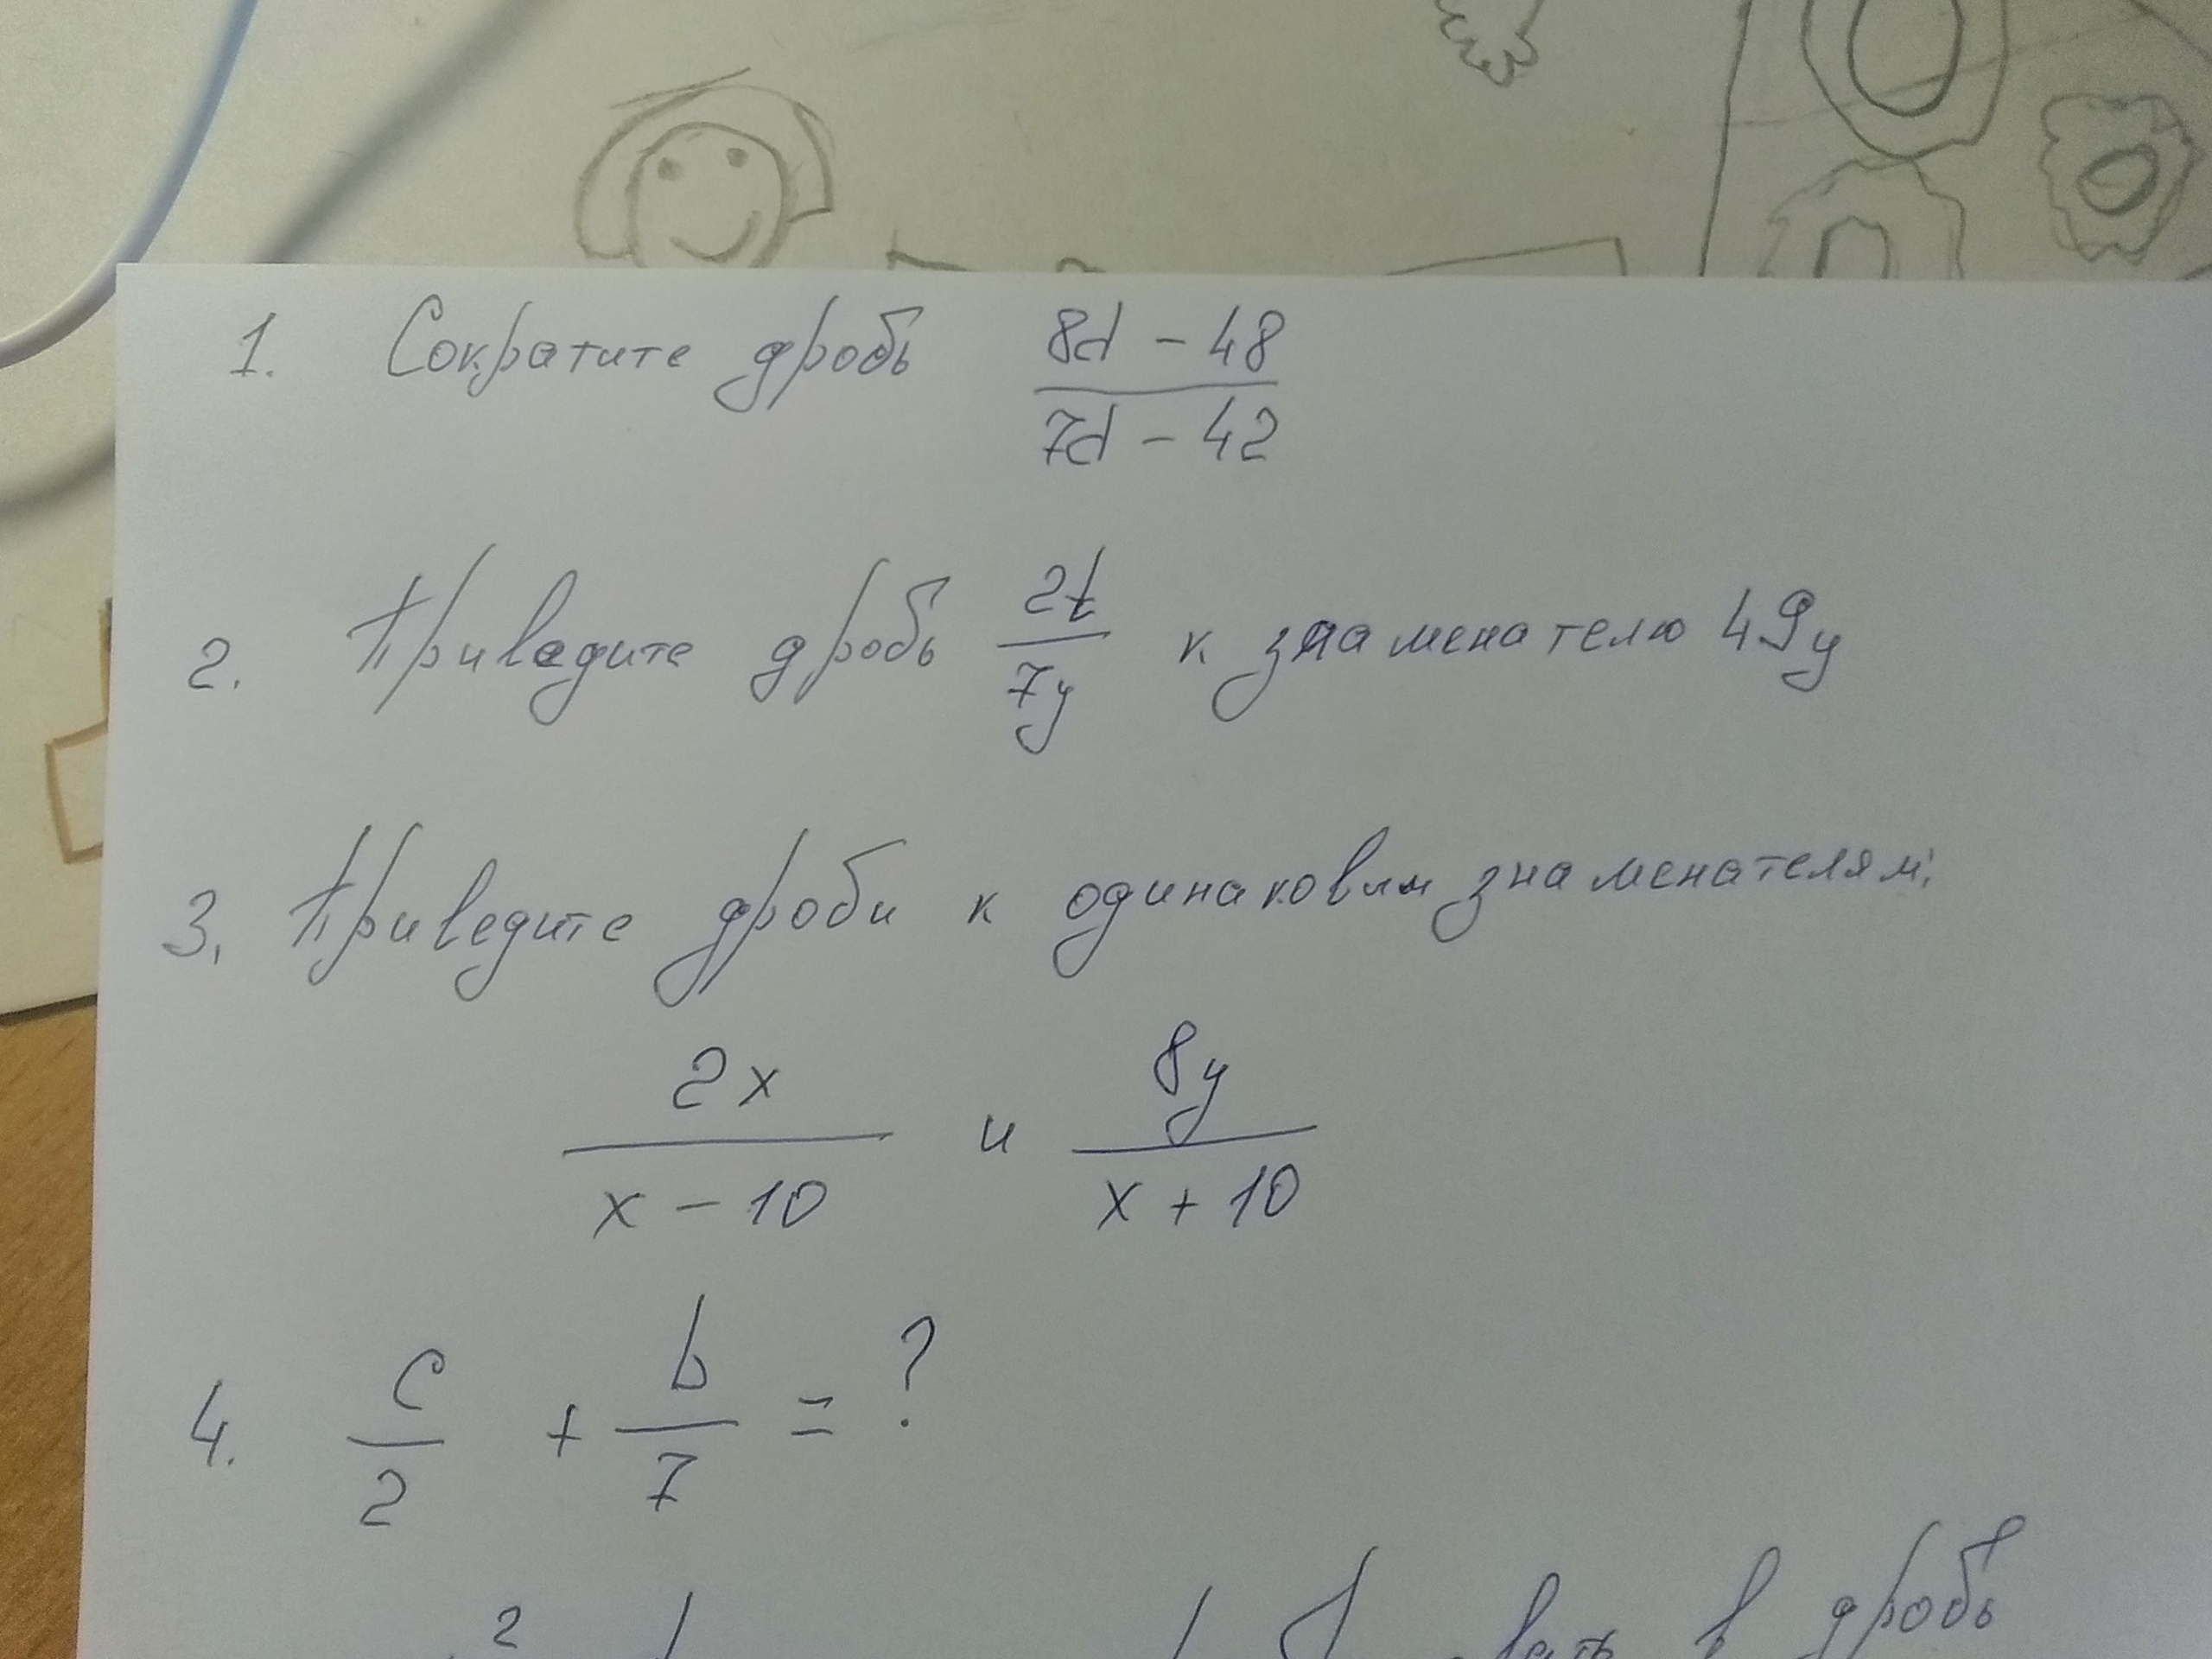 1. Сократите дробь (8d - 48)/(7d - 42)
2. Приведите дробь 2t/7y к знаменателю 49y
3. Приведите дроби к одинаковым знаменателям:
2x/(x - 10) и 8y/(x + 10)
4. c/2 + b/7 = ?
2 в дробь